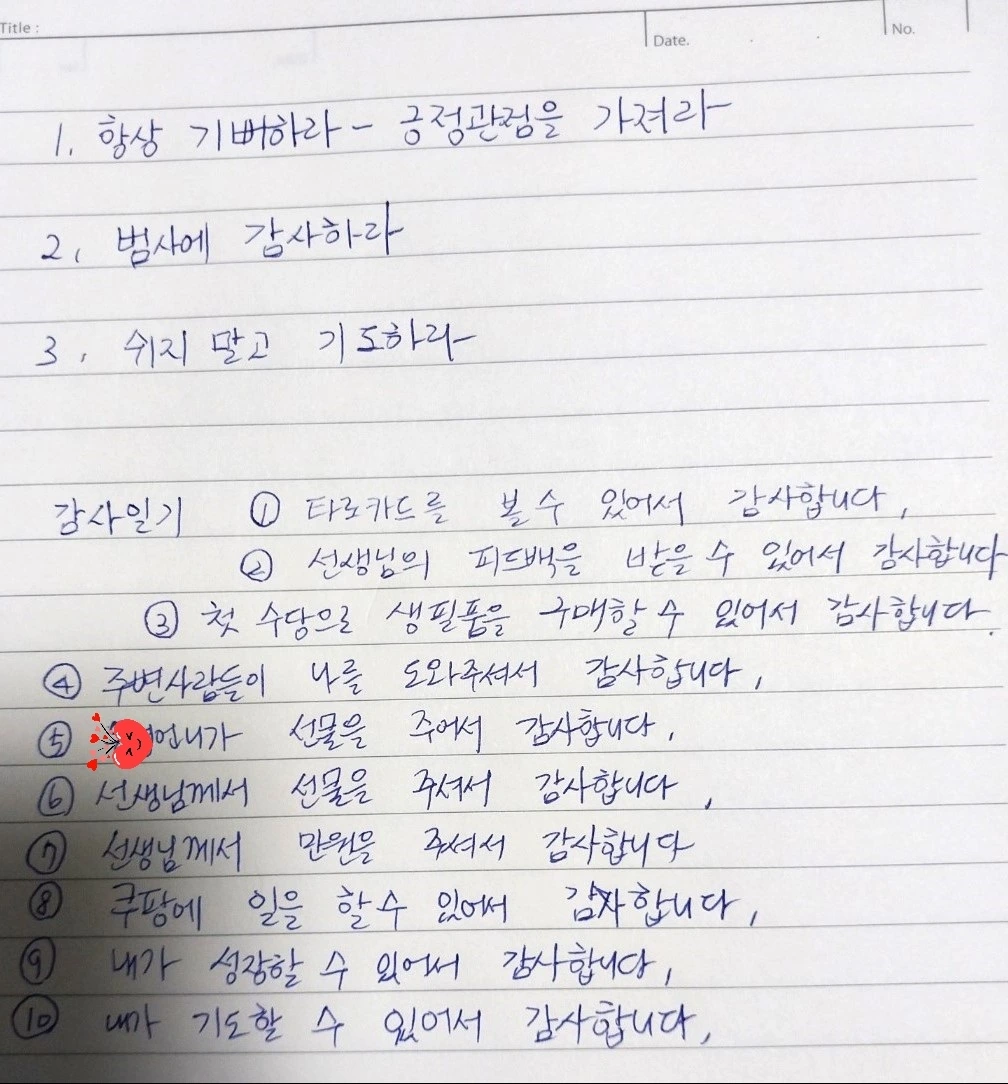 Title :
Date.
No.
1. 항상 기뻐하라 - 긍정관점을 가져라
2, 범사에 감사하라
3, 쉬지 말고 기도하라
감사일기 ① 타로카드를 볼 수 있어서 감사합니다,
② 선생님의 피드백을 받을 수 있어서 감사합니다
③ 첫 수당으로 생필품을 구매할 수 있어서 감사합니다.
④ 주변사람들이 나를 도와주셔서 감사합니다,
⑤ 언니가 선물을 주어서 감사합니다,
⑥ 선생님께서 선물을 주셔서 감사합니다,
⑦ 선생님께서 만원을 주셔서 감사합니다
⑧ 쿠팡에 일을 할 수 있어서 감사합니다,
⑨ 내가 성장할 수 있어서 감사합니다,
⑩ 내가 기도할 수 있어서 감사합니다,